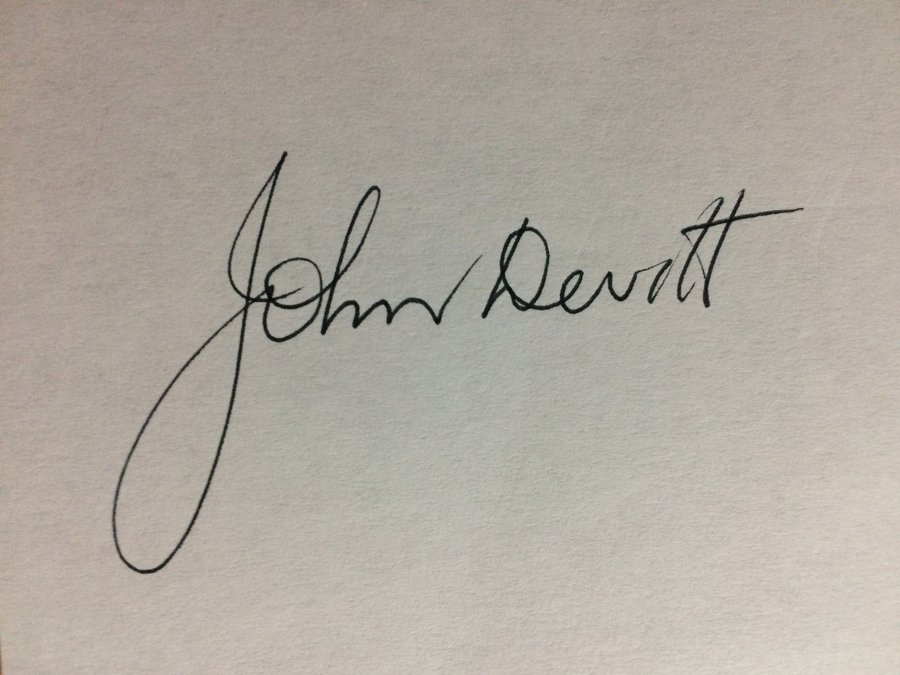 John Devitt